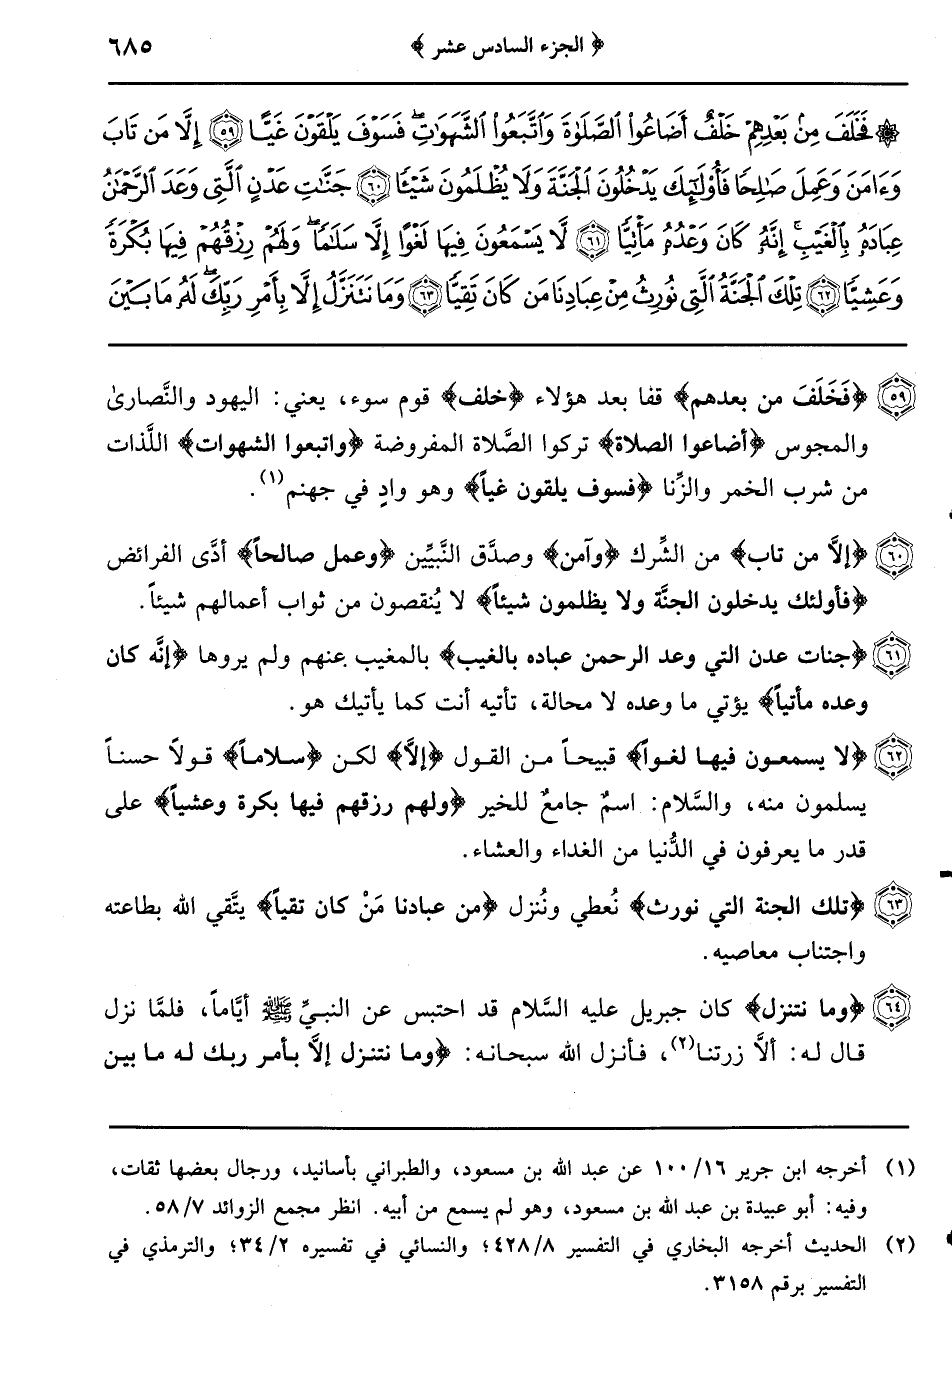 ﴿ الجزء السادس عشر ﴾ ٦٨٥
۞ فَخَلَفَ مِنۢ بَعۡدِهِمۡ خَلۡفٌ أَضَاعُواْ ٱلصَّلَوٰةَ وَٱتَّبَعُواْ ٱلشَّهَوَٰتِۖ فَسَوۡفَ يَلۡقَوۡنَ غَيًّا ٥٩ إِلَّا مَن تَابَ
وَءَامَنَ وَعَمِلَ صَٰلِحٗا فَأُوْلَٰٓئِكَ يَدۡخُلُونَ ٱلۡجَنَّةَ وَلَا يُظۡلَمُونَ شَيۡـٔٗا ٦٠ جَنَّٰتِ عَدۡنٍ ٱلَّتِي وَعَدَ ٱلرَّحۡمَٰنُ
عِبَادَهُۥ بِٱلۡغَيۡبِۚ إِنَّهُۥ كَانَ وَعۡدُهُۥ مَأۡتِيّٗا ٦١ لَّا يَسۡمَعُونَ فِيهَا لَغۡوًا إِلَّا سَلَٰمٗاۖ وَلَهُمۡ رِزۡقُهُمۡ فِيهَا بُكۡرَةٗ
وَعَشِيّٗا ٦٢ تِلۡكَ ٱلۡجَنَّةُ ٱلَّتِي نُورِثُ مِنۡ عِبَادِنَا مَن كَانَ تَقِيّٗا ٦٣ وَمَا نَتَنَزَّلُ إِلَّا بِأَمۡرِ رَبِّكَۖ لَهُۥ مَا بَيۡنَ
٥٩ ﴿فَخَلَفَ من بعدهم﴾ قفا بعد هؤلاء ﴿خلف﴾ قوم سوء، يعني: اليهود والنَّصارىٰ
والمجوس ﴿أضاعوا الصلاة﴾ تركوا الصَّلاة المفروضة ﴿واتبعوا الشهوات﴾ اللَّذات
من شرب الخمر والزِّنا ﴿فسوف يلقون غياً﴾ وهو وادٍ في جهنم(١).
٦٠ ﴿إلاَّ من تاب﴾ من الشِّرك ﴿وآمن﴾ وصدَّق النَّبيِّين ﴿وعمل صالحاً﴾ أدَّى الفرائض
﴿فأولئك يدخلون الجنَّة ولا يظلمون شيئاً﴾ لا يُنقصون من ثواب أعمالهم شيئاً.
٦١ ﴿جنات عدن التي وعد الرحمن عباده بالغيب﴾ بالمغيب عنهم ولم يروها ﴿إنَّه كان
وعده مأتياً﴾ يؤتي ما وعده لا محالة، تأتيه أنت كما يأتيك هو.
٦٢ ﴿لا يسمعون فيها لغواً﴾ قبيحاً من القول ﴿إلاَّ﴾ لكن ﴿سلاماً﴾ قولاً حسناً
يسلمون منه، والسَّلام: اسمٌ جامعٌ للخير ﴿ولهم رزقهم فيها بكرة وعشياً﴾ على
قدر ما يعرفون في الدُّنيا من الغداء والعشاء.
٦٣ ﴿تلك الجنة التي نورث﴾ نُعطي ونُنزل ﴿من عبادنا مَنْ كان تقياً﴾ يتَّقي الله بطاعته
واجتناب معاصيه.
٦٤ ﴿وما نتنزل﴾ كان جبريل عليه السَّلام قد احتبس عن النبيِّ ﷺ أيَّاماً، فلمَّا نزل
قال له: ألاَّ زرتنا(٢)، فأنزل الله سبحانه: ﴿وما نتنزل إلاَّ بأمر ربك له ما بين
(١) أخرجه ابن جرير ١٠٠/١٦ عن عبد الله بن مسعود، والطبراني بأسانيد، ورجال بعضها ثقات،
وفيه: أبو عبيدة بن عبد الله بن مسعود، وهو لم يسمع من أبيه. انظر مجمع الزوائد ٥٨/٧.
(٢) الحديث أخرجه البخاري في التفسير ٤٢٨/٨؛ والنسائي في تفسيره ٣٤/٢؛ والترمذي في
التفسير برقم ٣١٥٨.